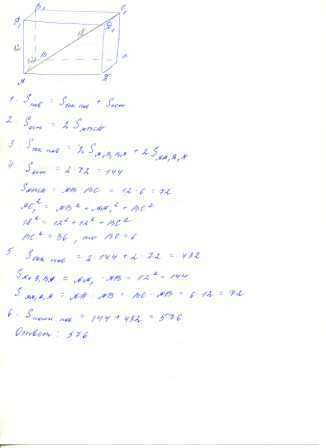 B₁ C₁
A₁ D₁
12 18
12 B C
A D
1. Sпов = Sбок пов + Sосн
2. Sосн = 2 SABCD
3. Sбок пов = 2 SA₁B₁BA + 2 S
4. Sосн = 2·72 = 144
SABCD = AB · BC = 12·6 = 72
AC₁² = AB² + AA₁² + BC²
18² = 12² + 12² + BC²
BC² = 36, то BC = 6
5. Sбок пов = 2·144 + 2·72 = 432
SAA₁B₁BA = AA₁ · AB = 12² = 144
= BC · AB = 6·12 = 72
6. Sполн пов = 144 + 432 = 576
Ответ: 576